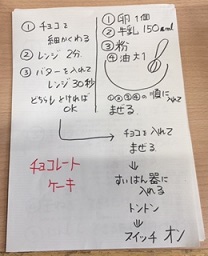 ① チョコを
細かくわる
② レンジ 2分
③ バターを入れて
レンジ30秒
どちらもとければ
OK
① 卵 1個
② 牛乳 150ml
③ 粉
④ 油 大1
①②③④の順に
入れて
まぜる
チョコを入れて
まぜる
⇓
すいはん器に
入れる
⇓
トントン
⇓
スイッチ オン
チョコレート
ケーキ